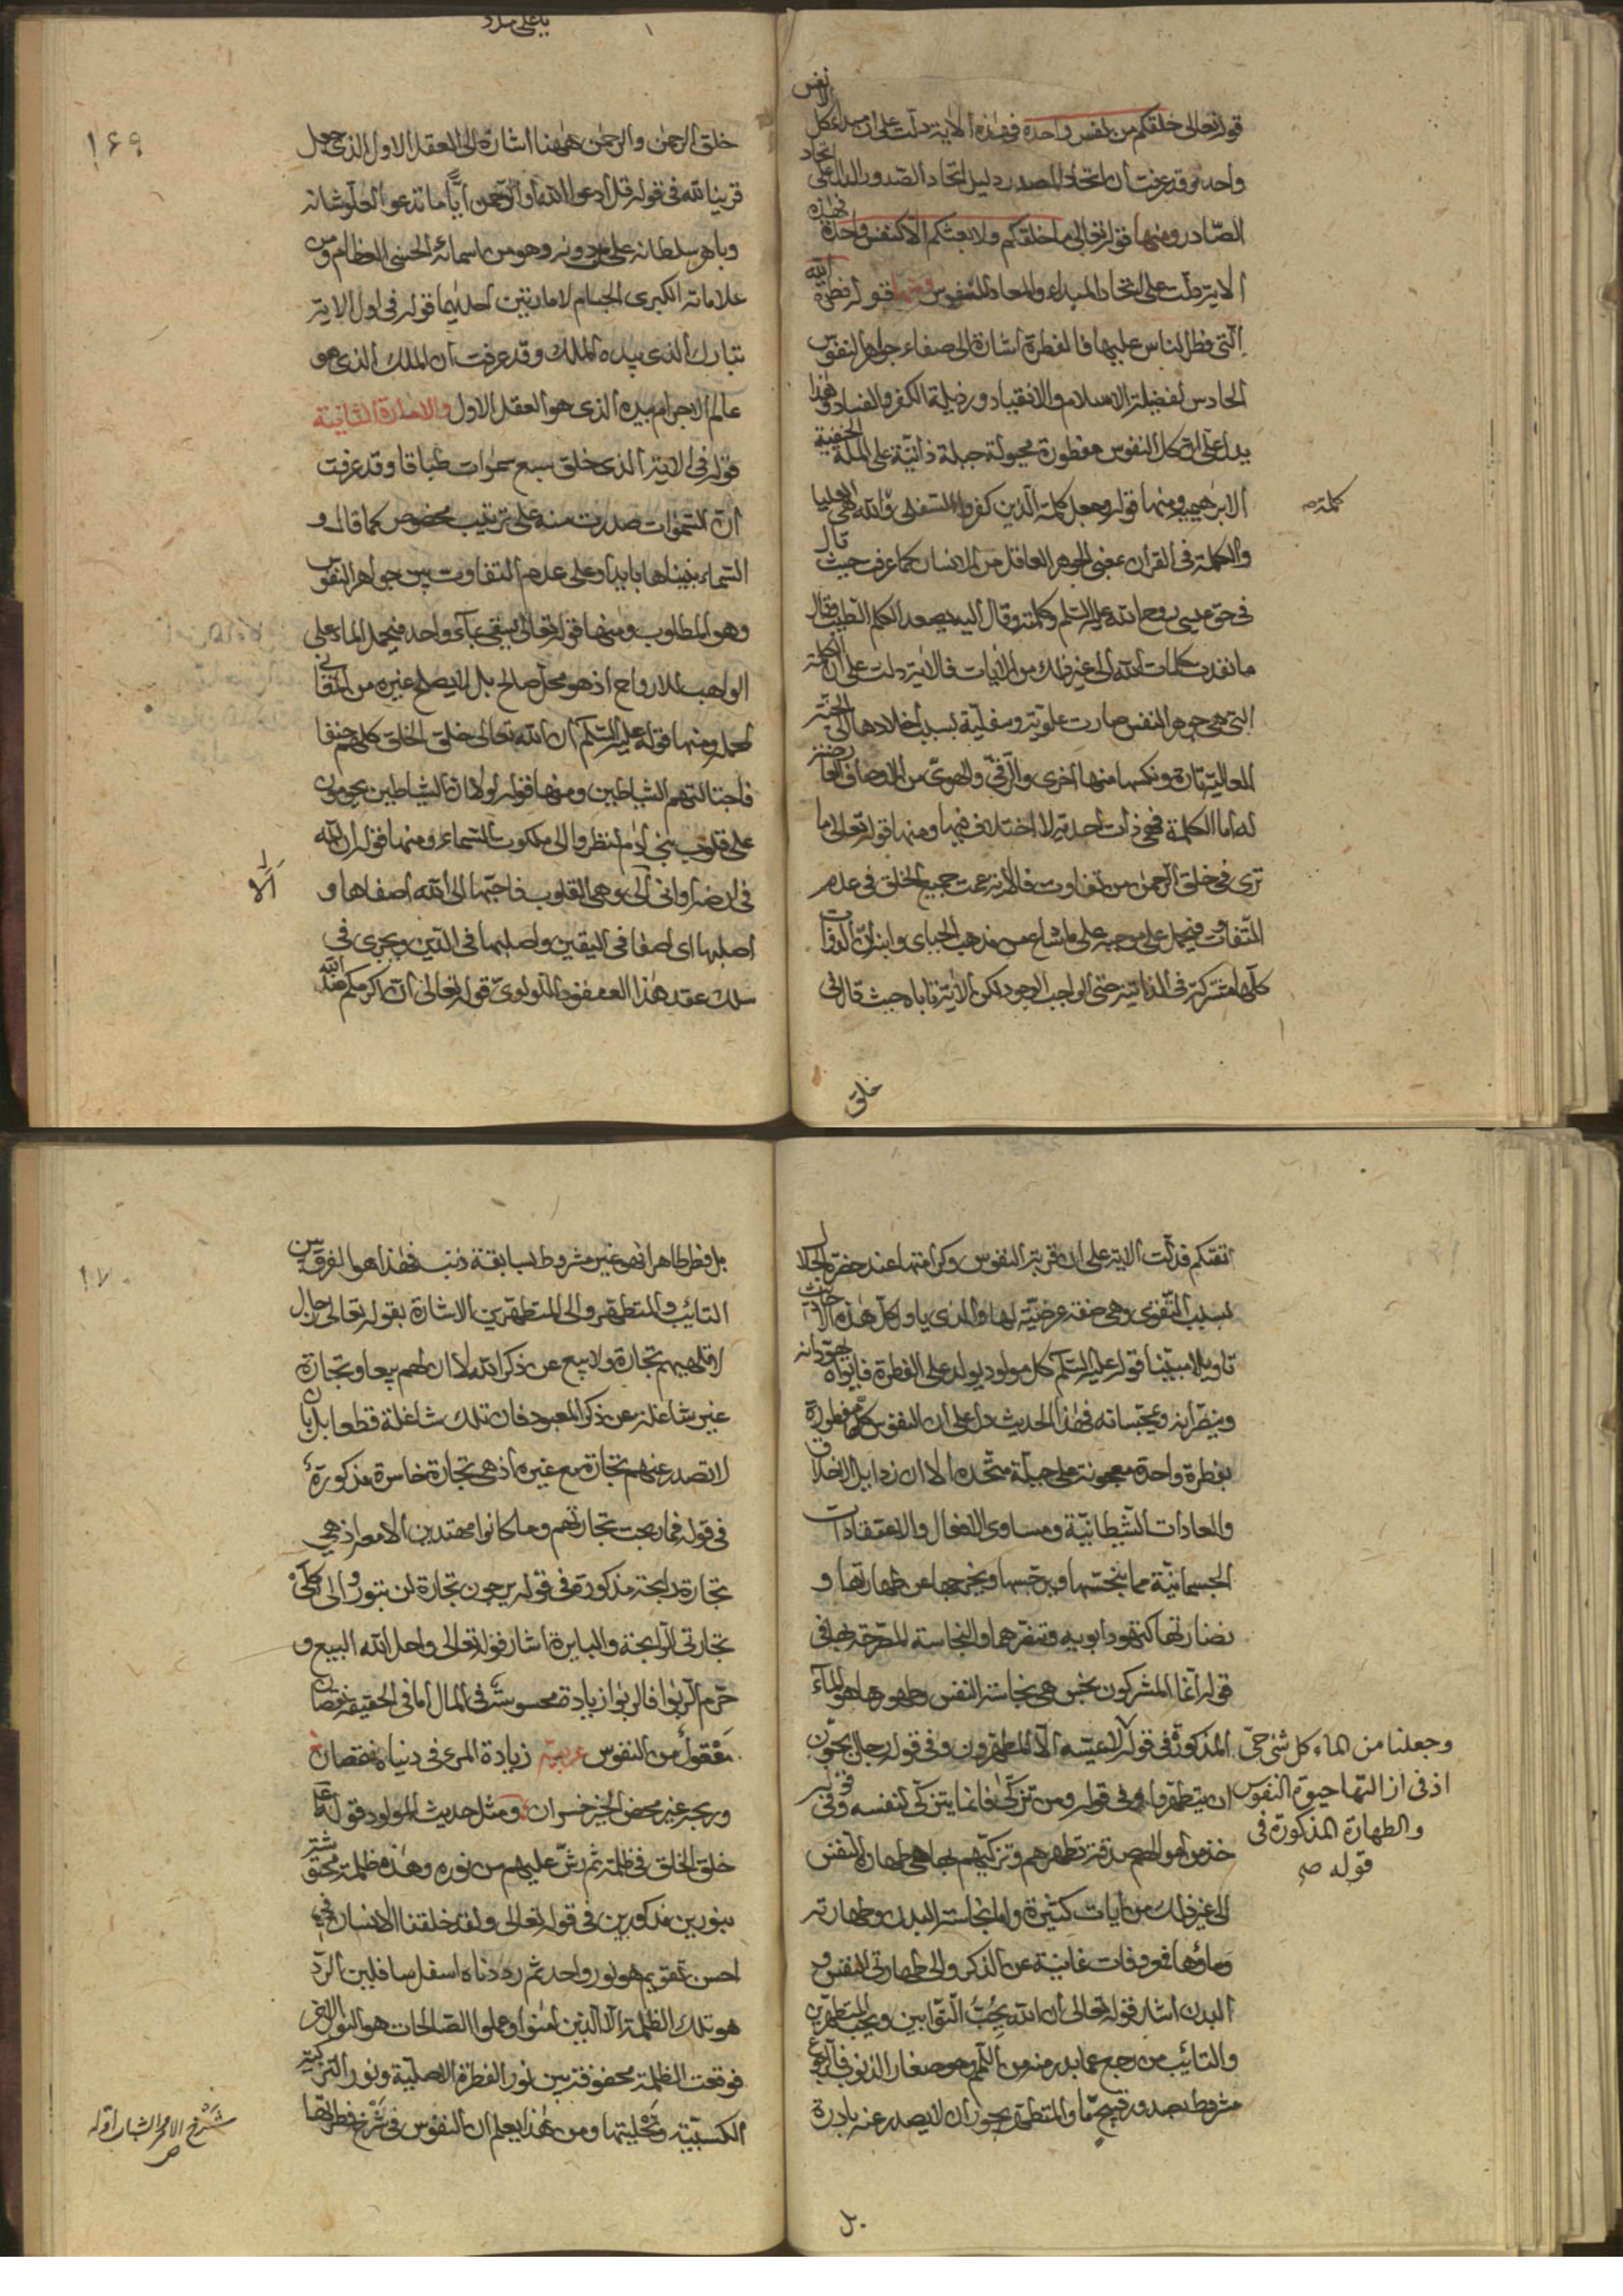 قوله تعالى خلقكم من نفس واحدة فهذه الاية دلت على ان مبداء كل الانفس
واحد وقد عرفت ان اتحاد المصدر دليل اتحاد الصدور الدال على اتحاد
الصادر ومنها قوله تعالى ما خلقكم ولا بعثكم الا كنفس واحدة فهذه
الاية دلت على اتحاد المبداء والمعاد للنفوس ومنها قوله فطرة الله
التى فطر الناس عليها فالفطرة اشارة الى صفاء جواهر النفوس
لفضيلة الاسلام والانقياد ورذيلة الكفر والفساد وهذا
يدل على ان كل النفوس مفطورة مجبولة جبلة ذاتية على الملة الحنيفية
الابراهيمية ومنها قوله وجعل كلمة الذين كفروا السفلى والله هى العليا
كلمة صح
والكلمة فى القرآن بمعنى الجوهر العاقل من الانسان كما عرفت حيث قال
فى حق عيسى روح الله عليه السلم وكلمته وقال اليه يصعد الكلم الطيب وقال
ما نفدت كلمات الله الى غير ذلك من الايات فالاية دلت على ان الكلمة
التى هى جوهر النفس صارت علوية وسفلية بسبب اخلادها الى الجنة
العالية تارة ونكسها منها اخرى والترقى والهوى من الاوصاف العارضة
له اما الكلمة فهى ذات احدية لا اختلاف فيها ومنها قوله تعالى ما
ترى فى خلق الرحمن من تفاوت فالاية عمت جميع الخلق فى عدم
التفاوت فيحمل على موجبه على ما شاع من مذهب الجباى وابنه ان الذوات
كلها مشتركة فى الذاتية حتى الواجب الوجود لكن الاية تاباه حيث قال فى
خلق
يا على مدد
١٦٩
خلق الرحمن والرحمن ههنا اشارة الى العقل الاول الذى جعل
قرينا لله فى قوله قل ادعوا الله او ادعوا الرحمن ايا ما تدعوا لعلو شانه
وباهر سلطانه على من دونه وهو من اسمائه الحسنى العظام ومن
علاماته الكبرى الجسام لامارتين احديهما قوله فى اول الاية
تبارك الذى بيده الملك وقد عرفت ان الملك الذى هو
عالم الاجرام بيده الذى هو العقل الاول والامارة الثانية
قوله فى الاية الذى خلق سبع سموات طباقا وقد عرفت
ان السموات صدرت منه على ترتيب مخصوص كما قال و
السماء بنيناها بايد وعلى عدم التفاوت بين جواهر النفوس
وهو المطلوب ومنها قوله تعالى يسقى بماء واحد فيحمل الماء على
الواهب للارواح اذ هو محل صالح بل لا يصلح غيره من المعانى
لحمله ومنها قوله عليه السلم ان الله تعالى خلق الخلق كلهم حنفا
فاجتالتهم الشياطين ومنها قوله لولا ان الشياطين يحومون
على قلوب بنى ادم لنظروا الى ملكوت السماء ومنها قوله ان لله
فى ارضه اوانى الا وهى القلوب فاحبها الى الله اصفاها و
اصلبها اى اصفا فى اليقين واصلبها فى الدين ويجرى فى
سلك عقد هذا العنقود اللولوى قوله تعالى ان اكرمكم عند الله
اتقيكم فدلت الاية على ان قربة النفوس وكرامتها عند حضرة الجلال
بسبب التقوى وهى صفة عرضية لها والذى ياول كل هذه
تاويلا مبينا قوله عليه السلم كل مولود يولد على الفطرة فابواه يهودانه
وينصرانه ويمجسانه فهذا الحديث دل على ان النفوس كلها مفطورة
بفطرة واحدة معجونة على جبلة متحدة الا ان رذايل الاخلاق
والعادات الشيطانية ومساوى الافعال والاعتقادات
الجسمانية مما ينجسها ويرجسها ويخرجها عن طهارتها و
نضارتها كتهود ابويه وتنصرهما والنجاسة المصرحة بها فى
قوله انما المشركون نجس هى نجاسة النفس وطهورها هو الماء
المذكورة فى قوله لا يمسه الا المطهرون وفى قوله رجال يحبون
وجعلنا من الماء كل شئ حى
اذ فى ازالتها حيوة النفوس
والطهارة المذكورة فى
قوله صح
ان يتطهروا وفى قوله ومن تزكى فانما يتزكى لنفسه وفى قوله
خذ من اموالهم صدقة تطهرهم وتزكيهم بها هى طهارة النفس
الى غير ذلك من ايات كثيرة واما نجاسة البدن وطهارته
وماؤها فمعروفات غانية عن الذكر والى طهارتى النفس و
البدن اشار قوله تعالى ان الله يحب التوابين ويحب المتطهرين
والتائب من رجع عما بدر منه من اللمم وهو صغار الذنوب
مشروط بصدور قبيح ما والمتطهر يجوز ان لا يصدر عنه بادرة
بل
١٧٠
بل فطر طاهرا فهو غير مشروط بسابقة ذنب فهذا هو الفرق بين
التائب والمتطهر والى المتطهرين الاشارة بقوله تعالى رجال
لا تلهيهم تجارة ولا بيع عن ذكر الله لا ان لهم بيعا وتجارة
غير شاغلة عن ذكر المعبود فان تلك شاغلة قطعا بل بان
لا تصدر عنهم تجارة مع غيره اذ هى تجارة خاسرة مذكورة
فى قوله فما ربحت تجارتهم وما كانوا مهتدين الا معه اذ هى
تجارة رابحة مذكورة فى قوله يرجون تجارة لن تبور والى كلتى
تجارتى الرابحة والبايرة اشار قوله تعالى واحل الله البيع و
حرم الربوا فالربوا زيادة محسوسة فى المال اما فى الحقيقة نقصان
معقول من النفوس عربية زيادة المرء فى دنياه نقصان
وربحه غير محض الخير خسران ومثل حديث المولود قوله ع
خلق الخلق فى ظلمة ثم رش عليهم من نوره وهذه ظلمة محتوشة
بنورين مذكورين فى قوله تعالى ولقد خلقنا الانسان فى
احسن تقويم هو نور واحد ثم رددناه اسفل سافلين الرد
هو تلك الظلمة الا الذين امنوا وعملوا الصالحات هو النور الاخر
فوقعت الظلمة محفوفة بين نور الفطرة الاصلية ونور التزكية
الكسبية وتحليتها ومن هذا يعلم ان النفوس فى شرخ فطرتها
شرخ الامر الشباب اوله